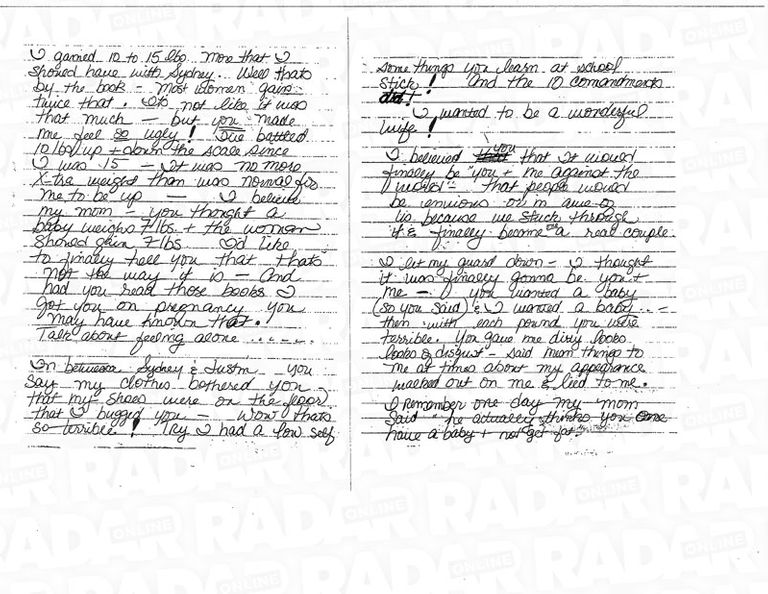 I gained 10 to 15 lbs more that I
showed have with Sydney. Well thats
by the book - Most women gain
twice that. Its not like it was
that much - but you made
me feel so ugly! I've battled
10 lbs up & down the scale since
I was 15 - It was no more
X-tra weight than was normal for
me to be up - I believe
my mom - you thought a
baby weighs 7 lbs & the woman
shoued gain 7 lbs. I'd like
to finally tell you that thats
not the way it is - And
had you read those books I
got you on pregnancy you
may have known that!
Talk about feeling alone . . . . . .
In between Sydney & Justin you
say my clothes bothered you -
that my shoes were on the floor
that I bugged you - Wow thats
so terrible! Try I had a low self
some things you learn at school
stick! And the 10 comandments
did!
I wanted to be a wonderful
wife!
I believed you that it woued
finally be "you & me against the
world" - that people woued
be envious or in awe of
us because we stuck through
it & finally become a real couple.
I let my guard down - I thought
it was finally gonna be you &
me - you wanted a baby
(so you said) & I wanted a baby . . . -
then with each pound you were
terrible. You gave me dirty looks
looks of disgust - said mean things to
me at times about my appearance
walked out on me & lied to me.
I remember one day my mom
said "he actually thinks you can
have a baby & not get fat."
RADAR
ONLINE